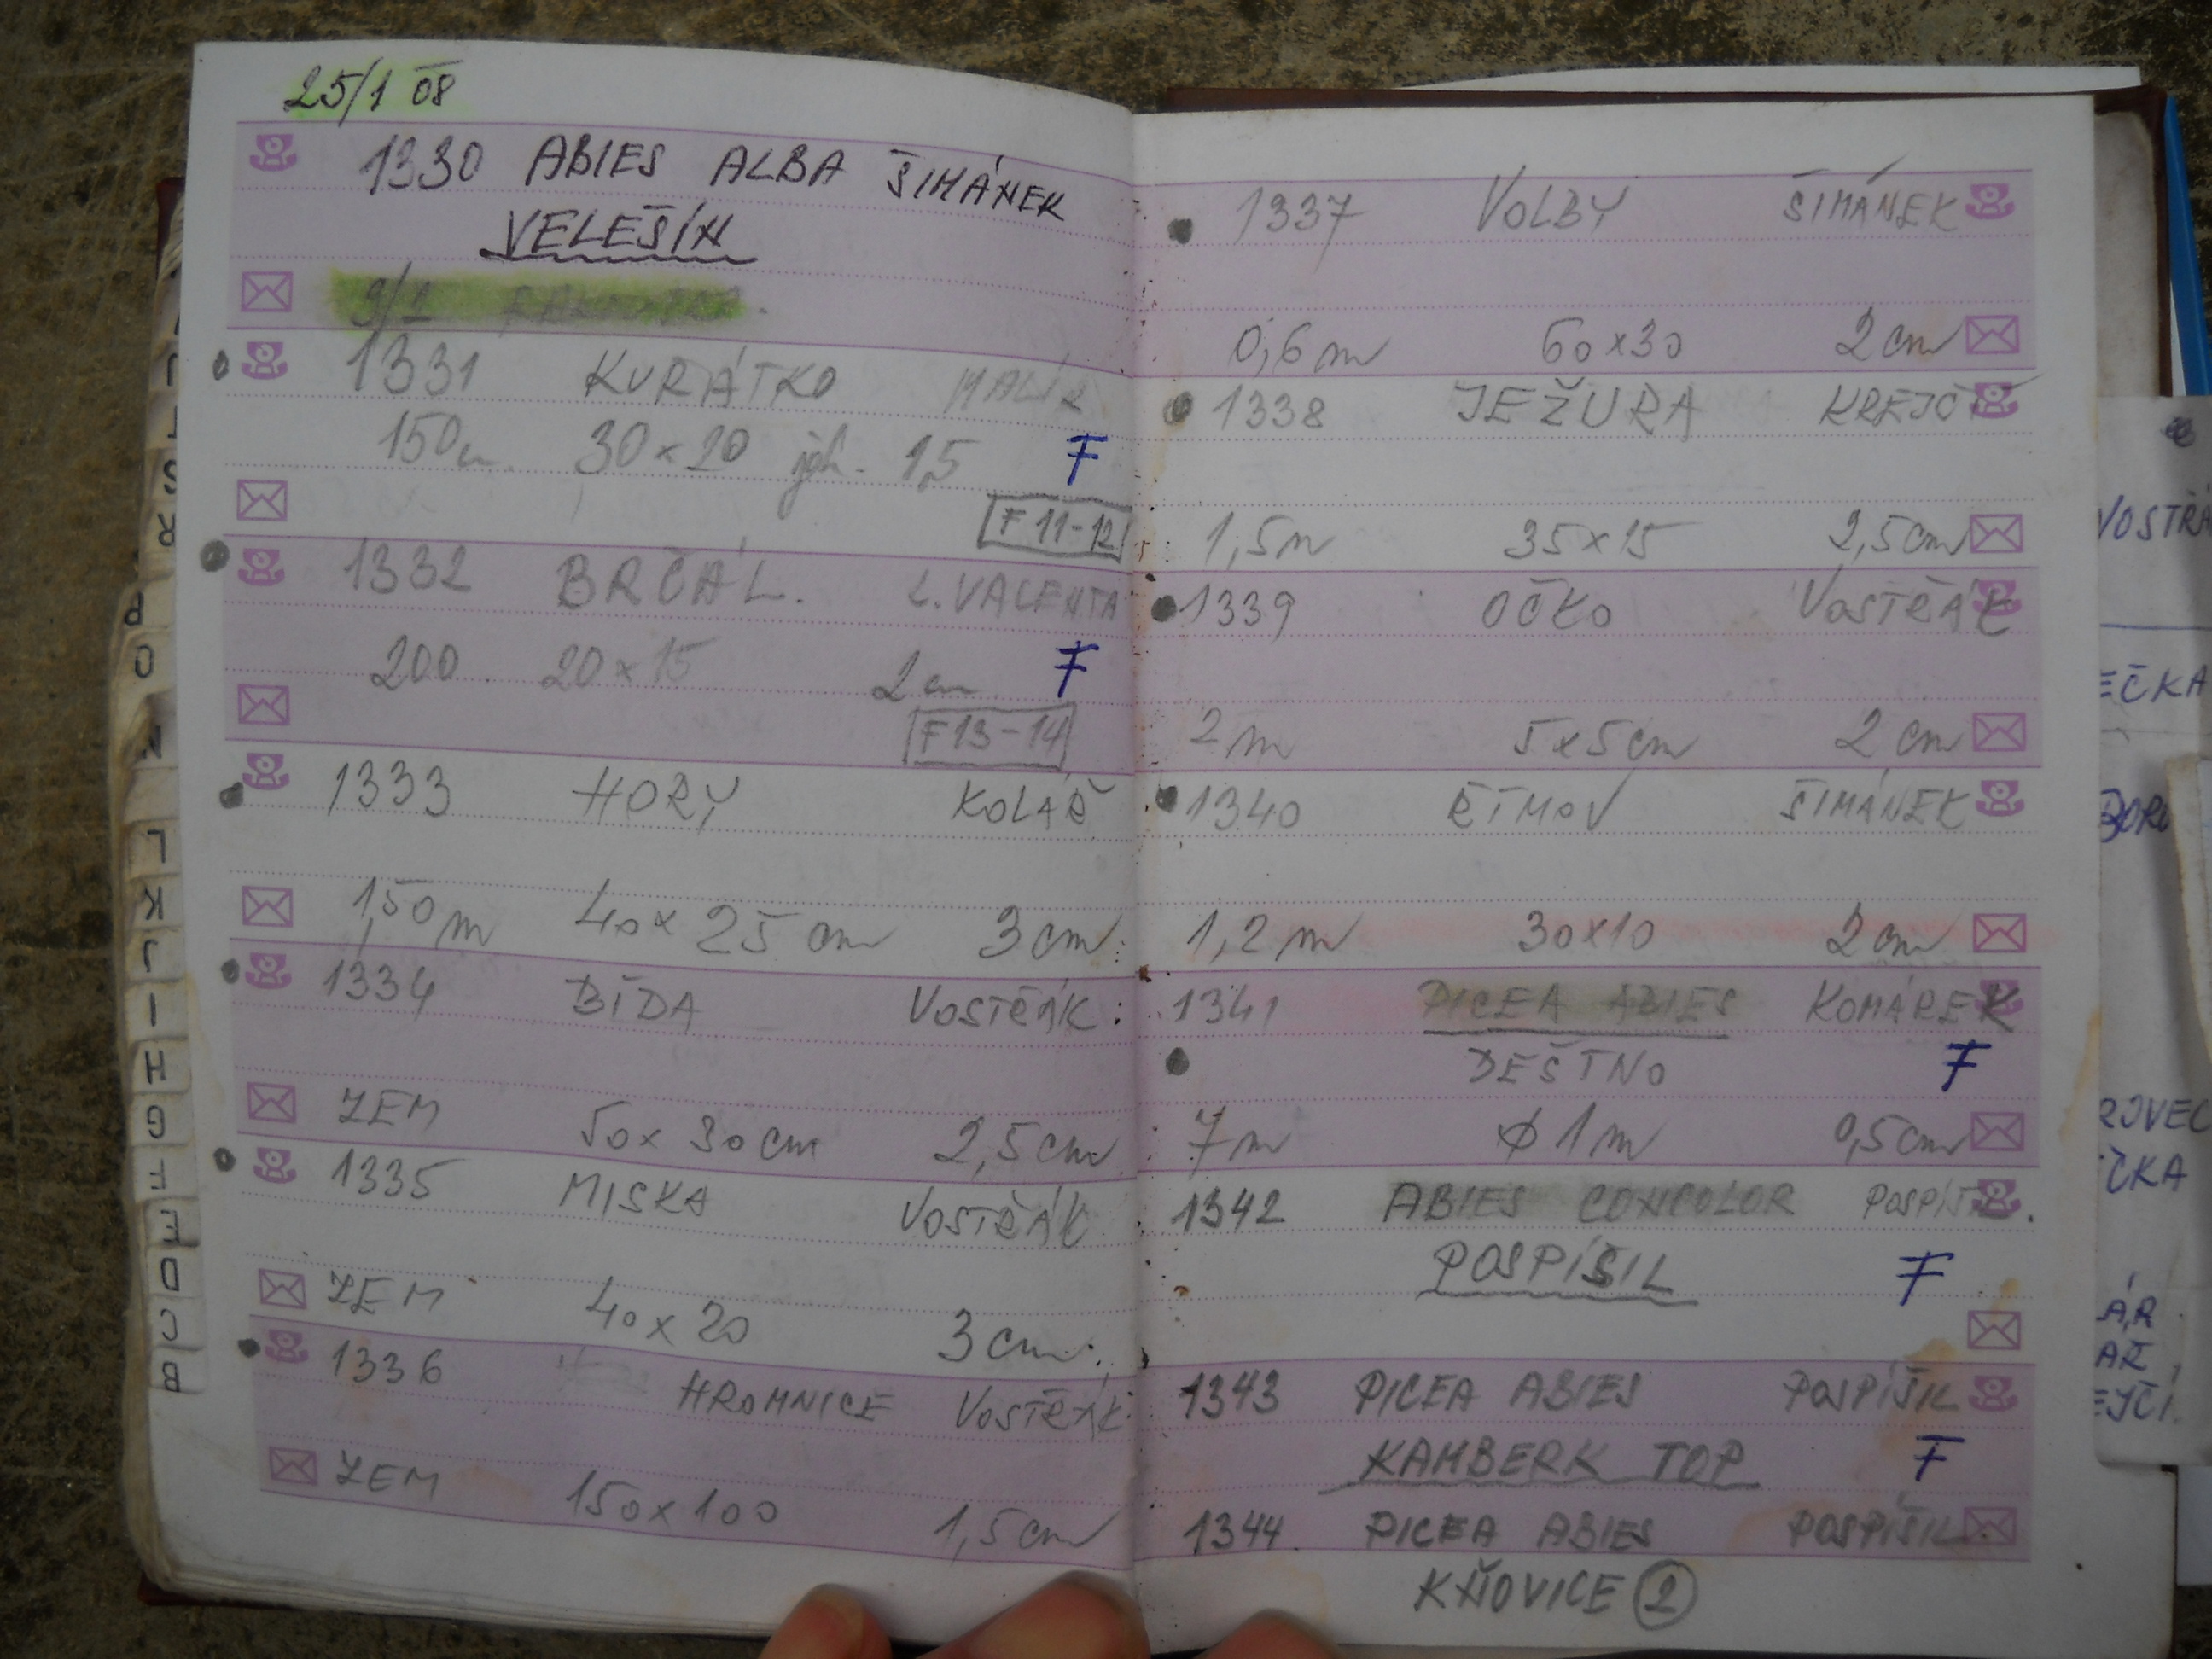 25/1 08
1330 ABIES ALBA ŠIMÁNEK
VELEŠÍN
9/2
1331 KURÁTKO MALÍK
150 30×20 jeh. 1,5 F
F 11-12
1332 BRČÁL. L. VALENTA
200 20×15 2 cm F
F 13-14
1333 HORY KOLÁŘ
1,50 m 40× 25 cm 3 cm
1334 BÍDA VOSTŘÁK
ZEM 50× 30 cm 2,5 cm
1335 MISKA VOSTŘÁK
ZEM 40×20 3 cm
1336 HROMNICE VOSTŘÁK
ZEM 150×100 1,5 cm
1337 VOLBY ŠIMÁNEK
0,6 m 60×30 2 cm
1338 JEŽURA KREJČÍ
1,5 m 35×15 2,5 cm
1339 OČKO VOSTŘÁK
2 m 5×5 cm 2 cm
1340 ŘÍMOV ŠIMÁNEK
1,2 m 30×10 2 cm
1341 PICEA ABIES KOMÁREK
DEŠTNO F
7 m ϕ 1 m 0,5 cm
1342 ABIES CONCOLOR POSPÍŠIL.
POSPÍŠIL F
1343 PICEA ABIES POSPÍŠIL
KAMBERK TOP F
1344. PICEA ABIES POSPÍŠIL
KŇOVICE 2
R
S
P
O
N
L
K
J
I
H
G
F
E
D
C
B
VOSTŘÁ
EČKA
BORO
ROVEC
ČKA
ÁR
AŘ
EJČÍ